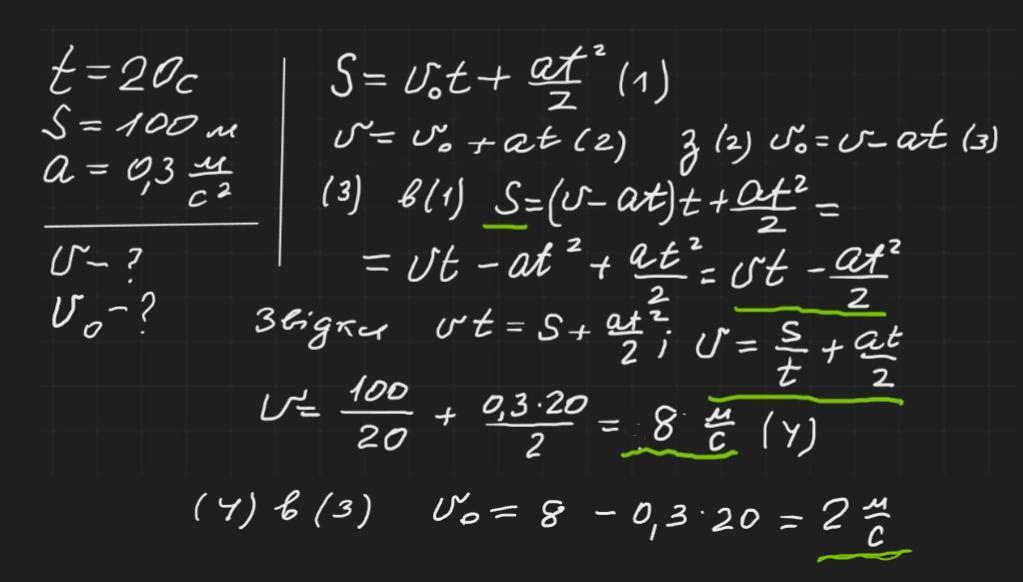 t = 20c
S = 100 м
a = 0,3 м/с²
υ - ?
υ₀ - ?
S = υ₀t + at²/2 (1)
υ = υ₀ + at (2) з (2) υ₀ = υ - at (3)
(3) в (1) S = (υ - at)t + at²/2 =
= υt - at² + at²/2 = υt - at²/2
Звідки υt = S + at²/2 ; υ = s/t + at/2
υ = 100/20 + 0,3·20/2 = 8 м/с (4)
(4) в (3) υ₀ = 8 - 0,3·20 = 2 м/с